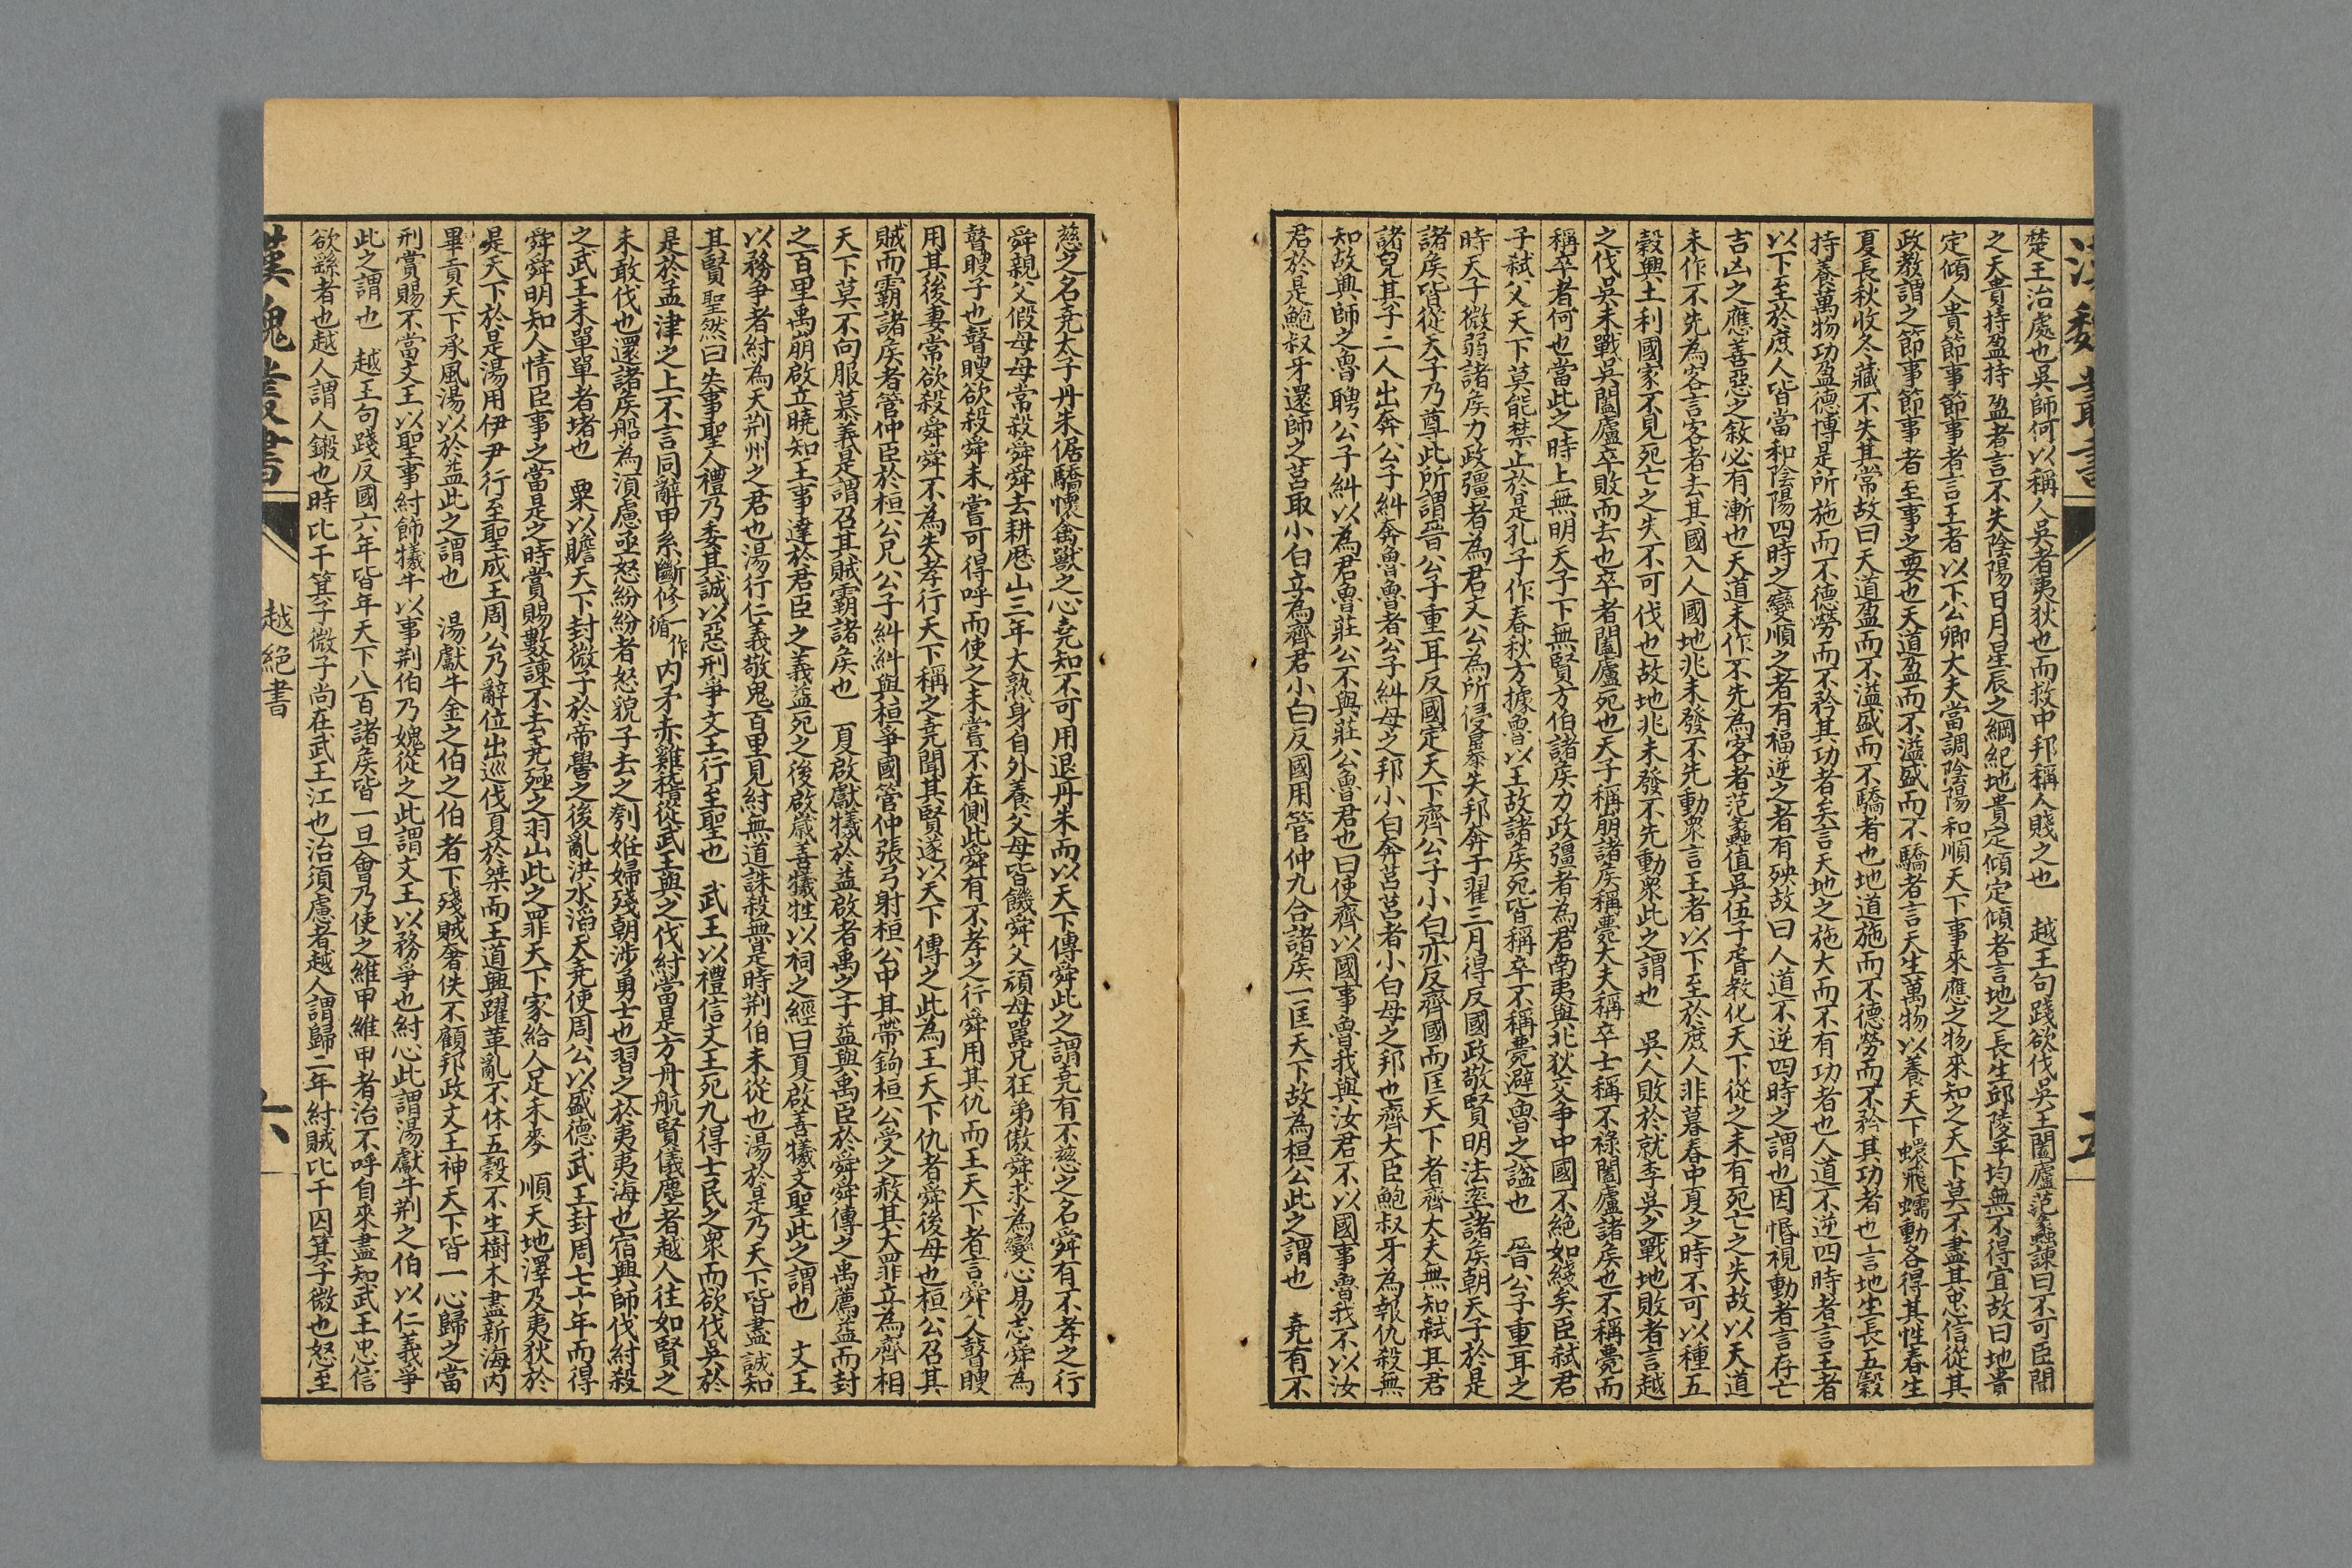 漢魏叢書
五
楚王治處也吳師何以稱人吳者夷狄也而救中邦稱人賤之也　越王句踐欲伐吳王闔廬范蠡諫曰不可臣聞
之天貴持盈持盈者言不失陰陽日月星辰之綱紀地貴定傾定傾者言地之長生邱陵平均無不得宜故曰地貴
定傾人貴節事節事者言王者以下公卿大夫當調陰陽和順天下事來應之物來知之天下莫不盡其忠信從其
政教謂之節事節事者至事之要也天道盈而不溢盛而不驕者言天生萬物以養天下蠉飛蠕動各得其性春生
夏長秋收冬藏不失其常故曰天道盈而不溢盛而不驕者也地道施而不德勞而不矜其功者也言地生長五穀
持養萬物功盈德博是所施而不德勞而不矜其功者矣言天地之施大而不有功者也人道不逆四時者言王者
以下至於庶人皆當和陰陽四時之變順之者有福逆之者有殃故曰人道不逆四時之謂也因惽視動者言存亡
吉凶之應善惡之敘必有漸也天道未作不先為客者范蠡值吳伍子胥教化天下從之未有死亡之失故以天道
未作不先為客言客者去其國入人國地兆未發不先動衆言王者以下至於庶人非暮春中夏之時不可以種五
穀興土利國家不見死亡之失不可伐也故地兆未發不先動衆此之謂也　吳人敗於就李吳之戰地敗者言越
之伐吳未戰吳闔廬卒敗而去也卒者闔廬死也天子稱崩諸侯稱薨大夫稱卒士稱不祿闔廬諸侯也不稱薨而
稱卒者何也當此之時上無明天子下無賢方伯諸侯力政彊者為君南夷與北狄交爭中國不絕如綫矣臣弒君
子弒父天下莫能禁止於是孔子作春秋方據魯以王故諸侯死皆稱卒不稱薨避魯之諡也　晉公子重耳之
時天子微弱諸侯力政彊者為君文公為所侵暴失邦奔于翟三月得反國政敬賢明法率諸侯朝天子於是
諸侯皆從天子乃尊此所謂晉公子重耳反國定天下齊公子小白亦反齊國而匡天下者齊大夫無知弒其君
諸兒其子二人出奔公子糾奔魯魯者公子糾母之邦小白奔莒莒者小白母之邦也齊大臣鮑叔牙為報仇殺無
知故興師之魯聘公子糾以為君魯莊公不與莊公魯君也曰使齊以國事魯我與汝君不以國事魯我不以汝
君於是鮑叔牙還師之莒取小白立為齊君小白反國用管仲九合諸侯一匡天下故為桓公此之謂也　堯有不
慈之名堯太子丹朱倨驕懷禽獸之心堯知不可用退丹朱而以天下傳舜此之謂堯有不慈之名舜有不孝之行
舜親父假母母常殺舜舜去耕歷山三年大熟身自外養父母皆饑舜父頑母嚚兄狂弟傲舜求為變心易志舜為
瞽瞍子也瞽瞍欲殺舜未嘗可得呼而使之未嘗不在側此舜有不孝之行舜用其仇而王天下者言舜父瞽瞍
用其後妻常欲殺舜舜不為失孝行天下稱之堯聞其賢遂以天下傳之此為王天下仇者舜後母也桓公召其
賊而霸諸侯者管仲臣於桓公兄公子糾糾與桓爭國管仲張弓射桓公中其帶鉤桓公受之赦其大罪立為齊相
天下莫不向服慕義是謂召其賊霸諸侯也　夏啟獻犧於益啟者禹之子益與禹臣於舜舜傳之禹薦益而封
之百里禹崩啟立曉知王事達於君臣之義益死之後啟歲善犧牲以祠之經曰夏啟善犧文聖此之謂也　文王
以務爭者紂為天荆州之君也湯行仁義敬鬼百里見紂無道誅殺無是時荆伯未從也湯於是乃天下皆盡誠知
其賢聖然曰失事聖人禮乃委其誠以惡刑爭文王行至聖也　武王以禮信文王死九得士民之衆而欲伐吳於
是於孟津之上不言同辭甲糸斷修一作循內矛赤雞稽從武王與之伐紂當是方舟航賢儀塵者越人往如賢之
未敢伐也還諸侯船為湏慮亟怒紛紛者怒貌子去之刳姙婦殘朝涉勇士也習之於夷夷海也宿興師伐紂殺
之武王未單單者堵也　粟以贍天下封微子於帝嚳之後亂洪水滔天堯使周公以盛德武王封周七十年而得
舜舜明知人情臣事之當是之時賞賜數諫不去堯殛之羽山此之罪天下家給人足禾麥　順天地澤及夷狄於
是天下於是湯用伊尹行至聖成王周公乃辭位出巡伐夏於桀而王道興躍革亂不休五穀不生樹木盡新海內
畢貢天下承風湯以於益此之謂也　湯獻牛金之伯之伯者下殘賊奢佚不顧邦政文王神天下皆一心歸之當
刑賞賜不當文王以聖事紂飾犧牛以事荆伯乃媿從之此謂文王以務爭也紂心此謂湯獻牛荆之伯以仁義爭
此之謂也　越王句踐反國六年皆年天下八百諸侯皆一旦會乃使之維甲維甲者治不呼自來盡知武王忠信
欲繇者也越人謂人鎩也時比干箕子微子尚在武王江也治須慮者越人謂歸二年紂賊比干囚箕子微也怒至
漢魏叢書
越絕書
六